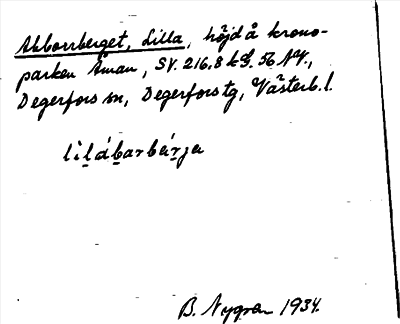 Abborrberget, Lilla, höjd å krono-
parken Åman, SV. 216,8 kS. 56 NV.,
Degerfors sn, Degerfors tg, Västerb. l.
lìlábarbárja
B. Nygren 1934.